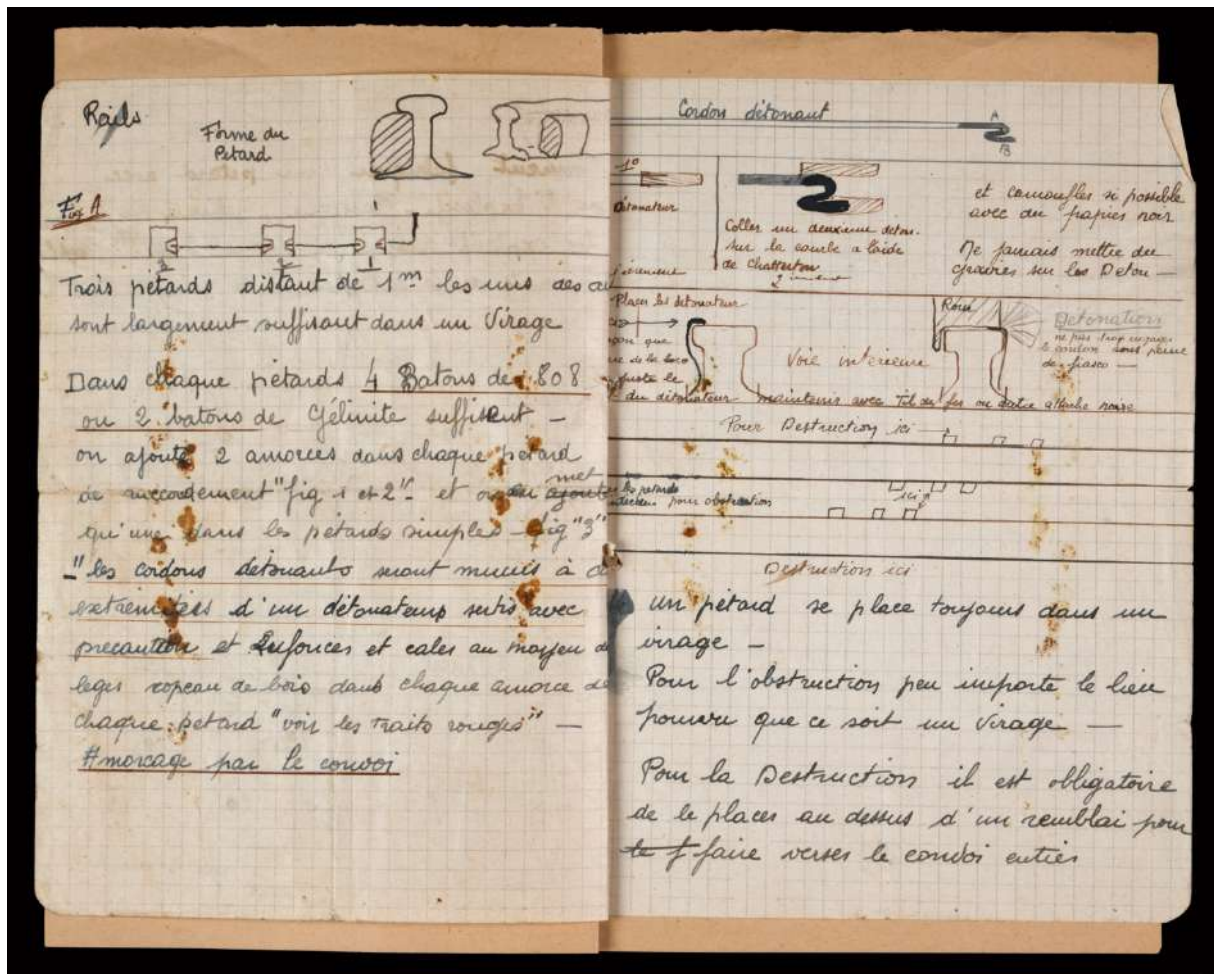 Rails
Forme du
Petard
Fig A
3 2 1
Trois pétards distant de 1m les uns des
sont largement suffisant dans un Virage
Dans chaque pétards 4 Batons de 808
ou 2 batons de Gélinite suffisent -
on ajoute 2 amorces dans chaque pétard
de raccordement "fig 1 et 2" et on met
qu'une dans les pétards simples - fig "3"
"les cordons détonants seront munis à
extremitées d'un détonateur sertis avec
precaution et enfonces et cales au moyen
leger copeau de bois dans chaque amorce de
chaque pétard "voir les traits rouges" —
Amorcage par le convoi
Cordon détonant
A
B
1°
Détonateur
Coller un deuxieme déton.
sur la courbe a l'aide
de Chatterton
2
et camoufles si possible
avec du papier noir
Ne jamais mettre du
graisses sur les Deton —
Placer les détonateur
que
de la loco
juste le
du détonateur maintenir avec fil de fer ou autre attache noire
Voie intérieure
Roue
Détonation
ne pas trop
le cordon sous peine
de fiasco —
Pour Destruction ici
les petards
pour obstruction
ici
Destruction ici
Un pétard se place toujours dans un
virage —
Pour l'obstruction peu importe le lieu
pourvu que ce soit un Virage —
Pour la Destruction il est obligatoire
de le placer au dessus d'un remblai pour
le f faire verser le convoi entier